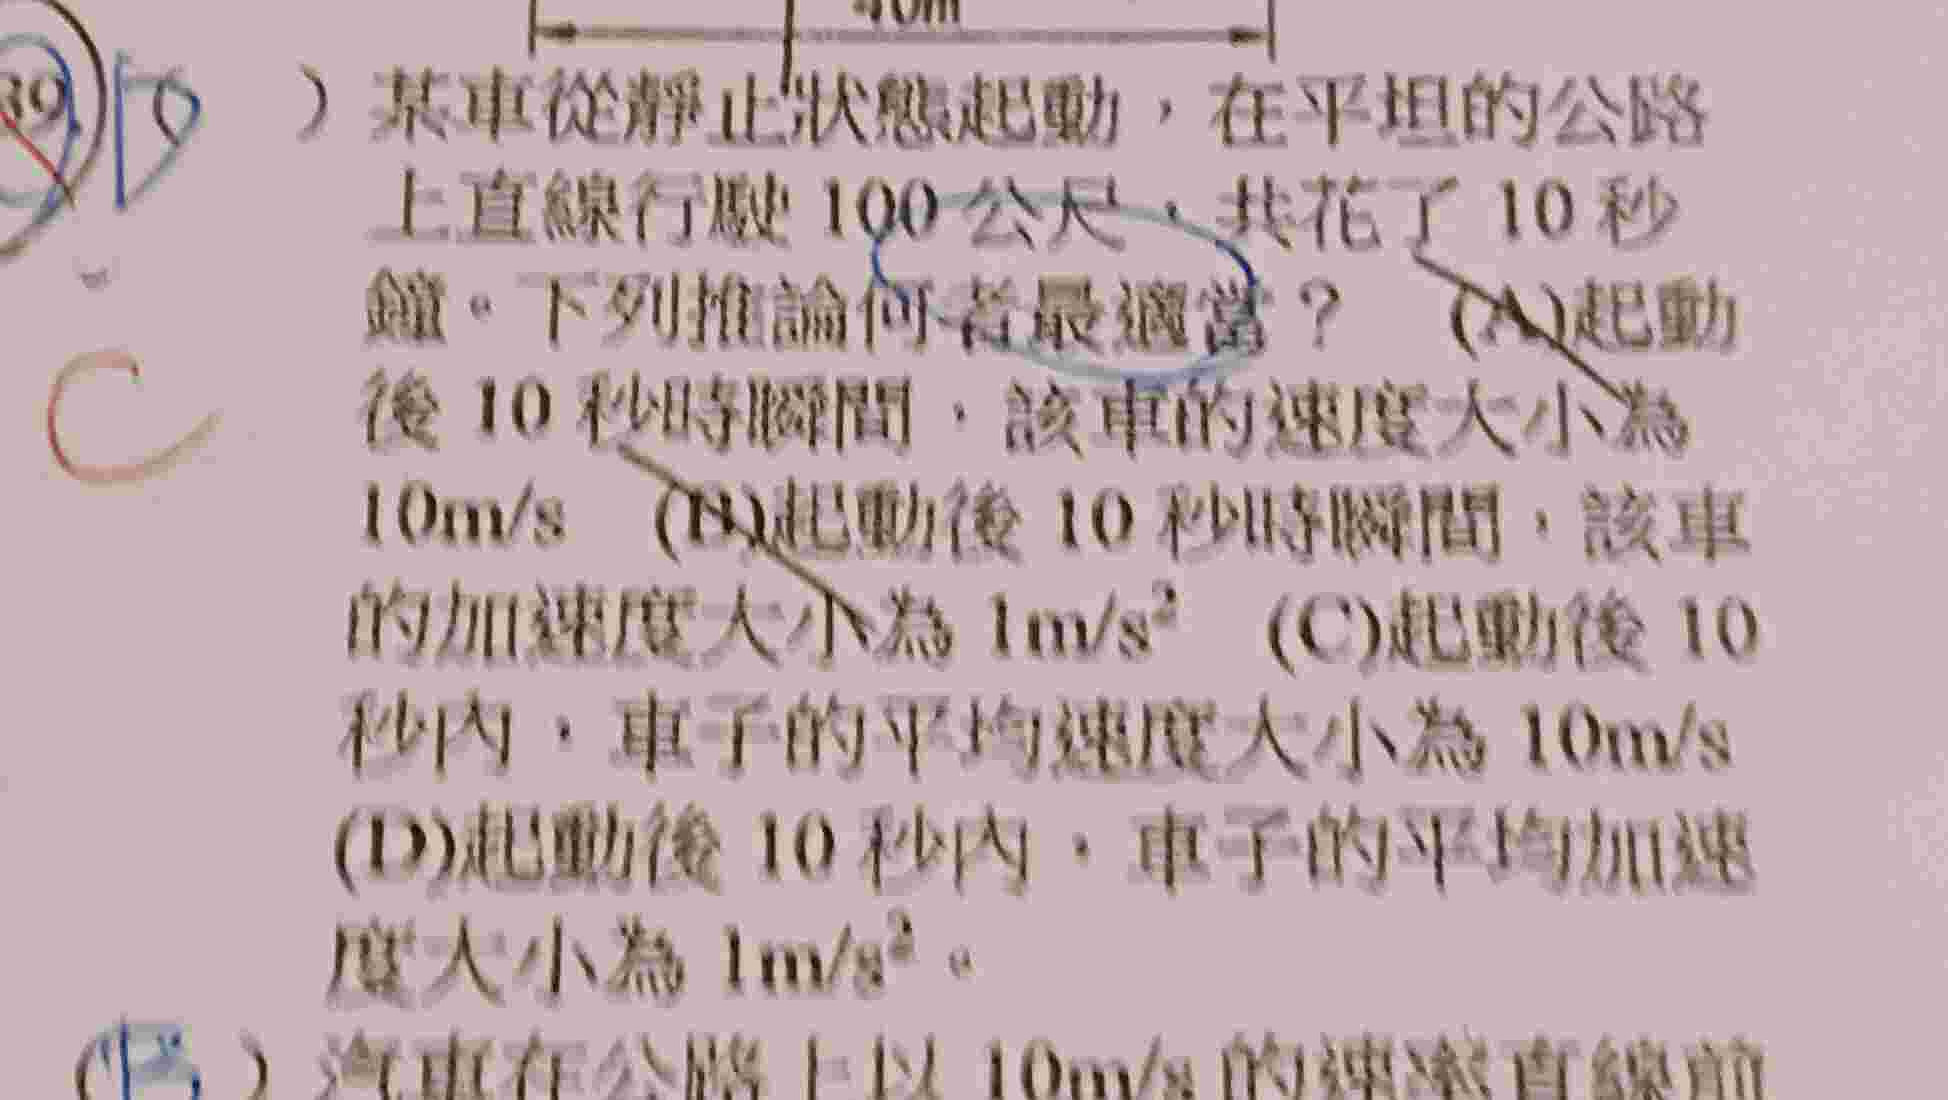 40m
39 D ) 某車從靜止狀態起動，在平坦的公路
上直線行駛 100 公尺，共花了 10 秒
鐘。下列推論何者最適當？ (A)起動
C
後 10 秒時瞬間，該車的速度大小為
10m/s (B)起動後 10 秒時瞬間，該車
的加速度大小為 1m/s² (C)起動後 10
秒內，車子的平均速度大小為 10m/s
(D)起動後 10 秒內，車子的平均加速
度大小為 1m/s²。
( ) 汽車在公路上以 10m/s 的速率直線前